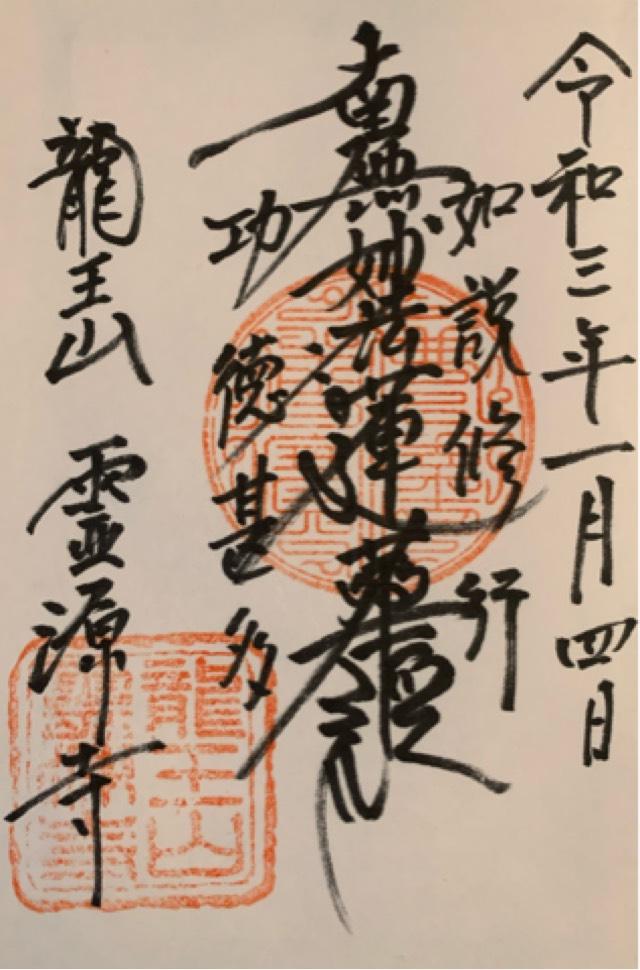 令和三年一月四日
如説修行
南無妙法蓮華経
功徳甚多
龍王山 霊源寺
龍王山